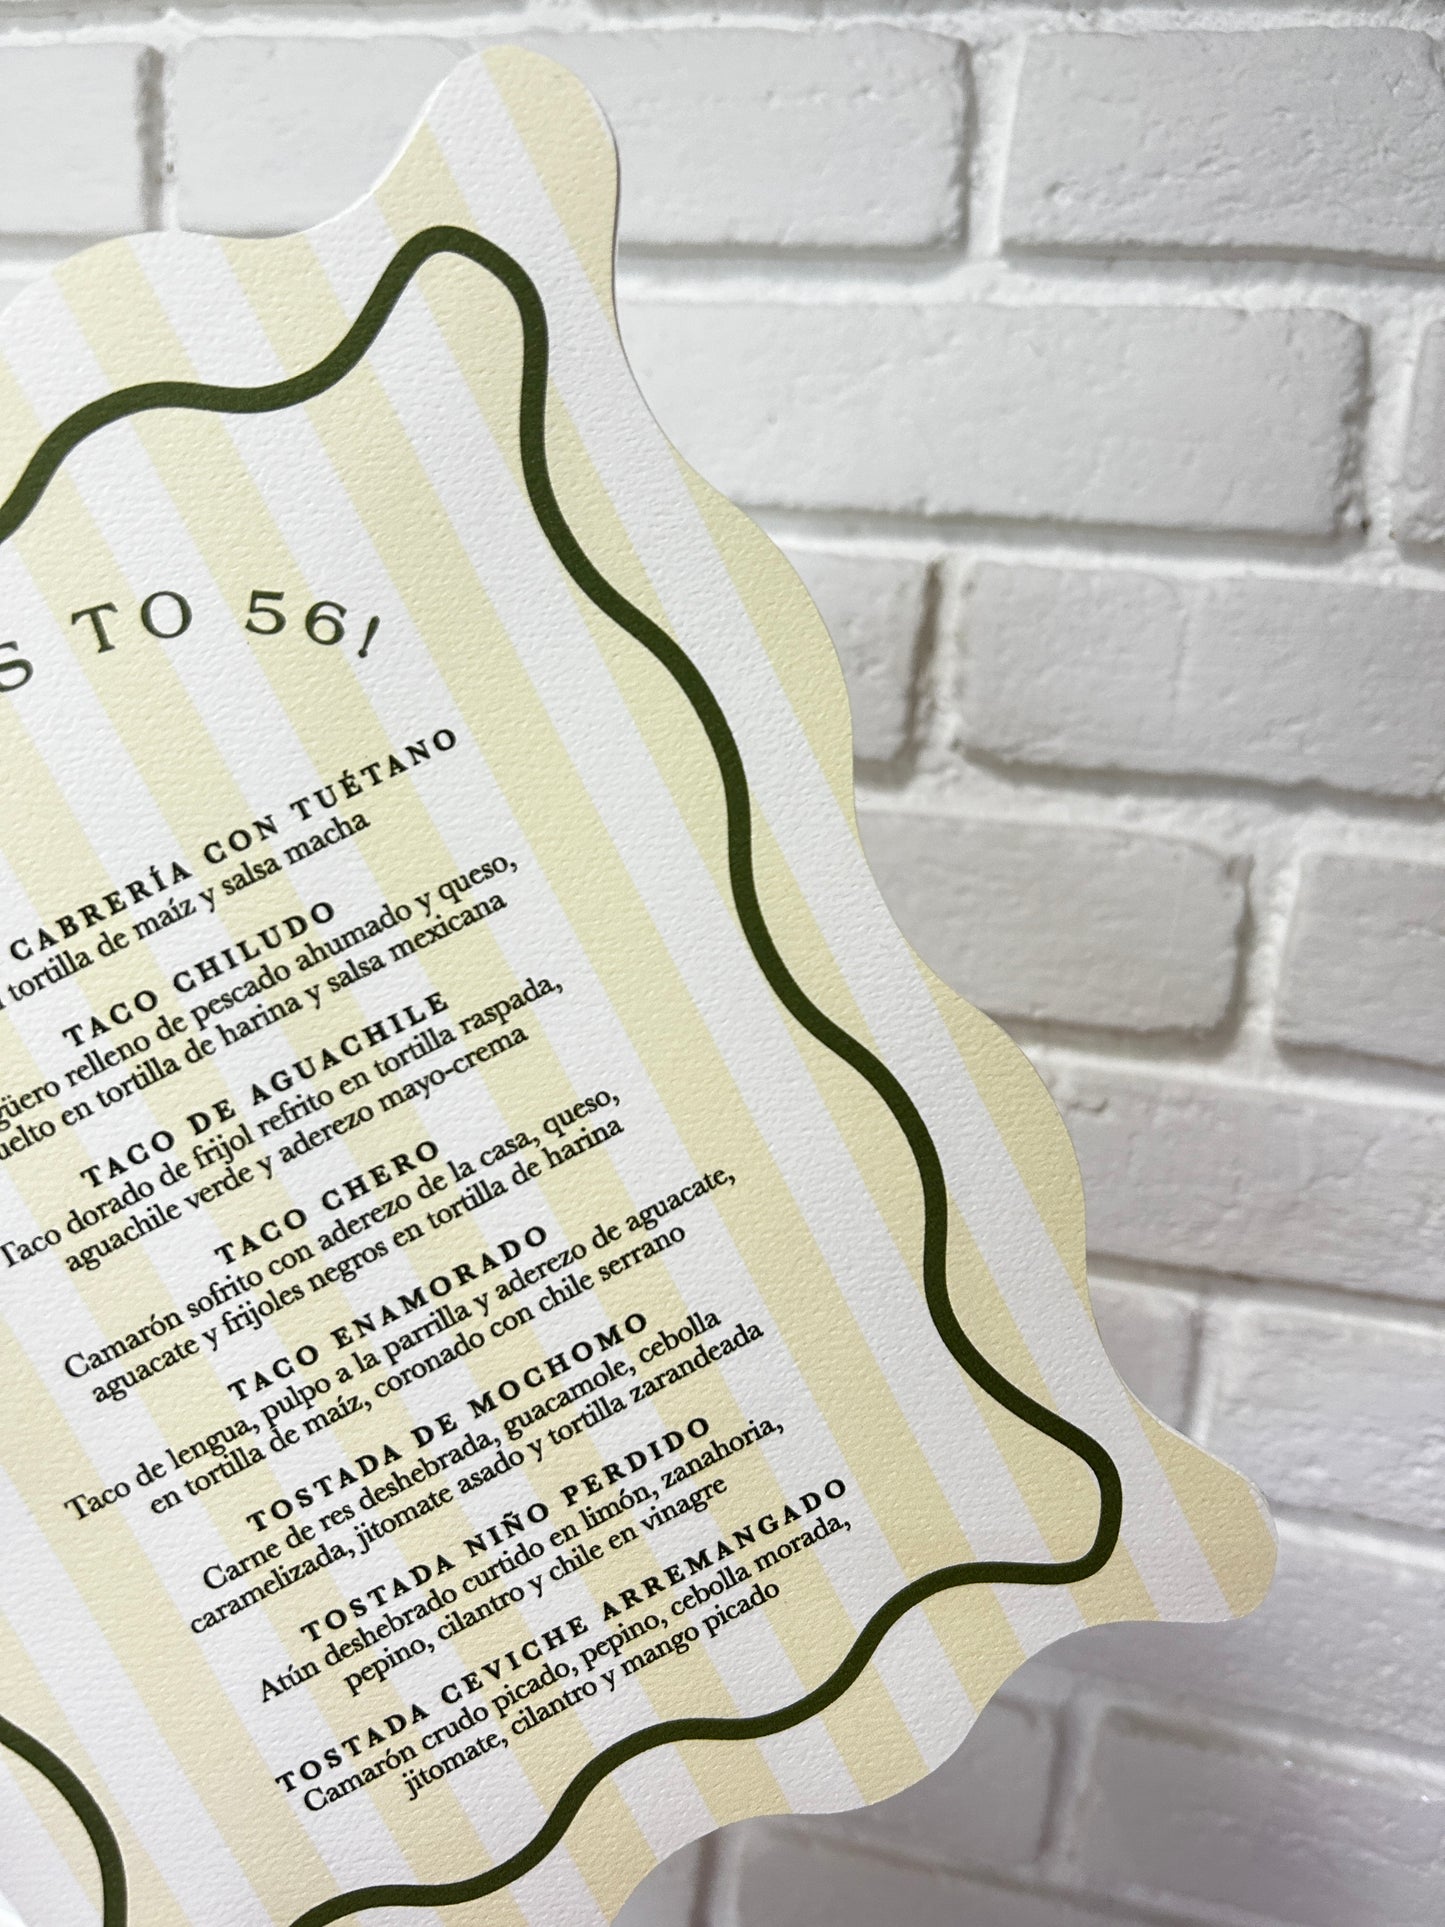 S TO 56!
CABRERÍA CON TUÉTANO
tortilla de maíz y salsa macha
TACO CHILUDO
güero relleno de pescado ahumado y queso,
uelto en tortilla de harina y salsa mexicana
TACO DE AGUACHILE
Taco dorado de frijol refrito en tortilla raspada,
aguachile verde y aderezo mayo-crema
TACO CHERO
Camarón sofrito con aderezo de la casa, queso,
aguacate y frijoles negros en tortilla de harina
TACO ENAMORADO
Taco de lengua, pulpo a la parrilla y aderezo de aguacate,
en tortilla de maíz, coronado con chile serrano
TOSTADA DE MOCHOMO
Carne de res deshebrada, guacamole, cebolla
caramelizada, jitomate asado y tortilla zarandeada
TOSTADA NIÑO PERDIDO
Atún deshebrado curtido en limón, zanahoria,
pepino, cilantro y chile en vinagre
TOSTADA CEVICHE ARREMANGADO
Camarón crudo picado, pepino, cebolla morada,
jitomate, cilantro y mango picado